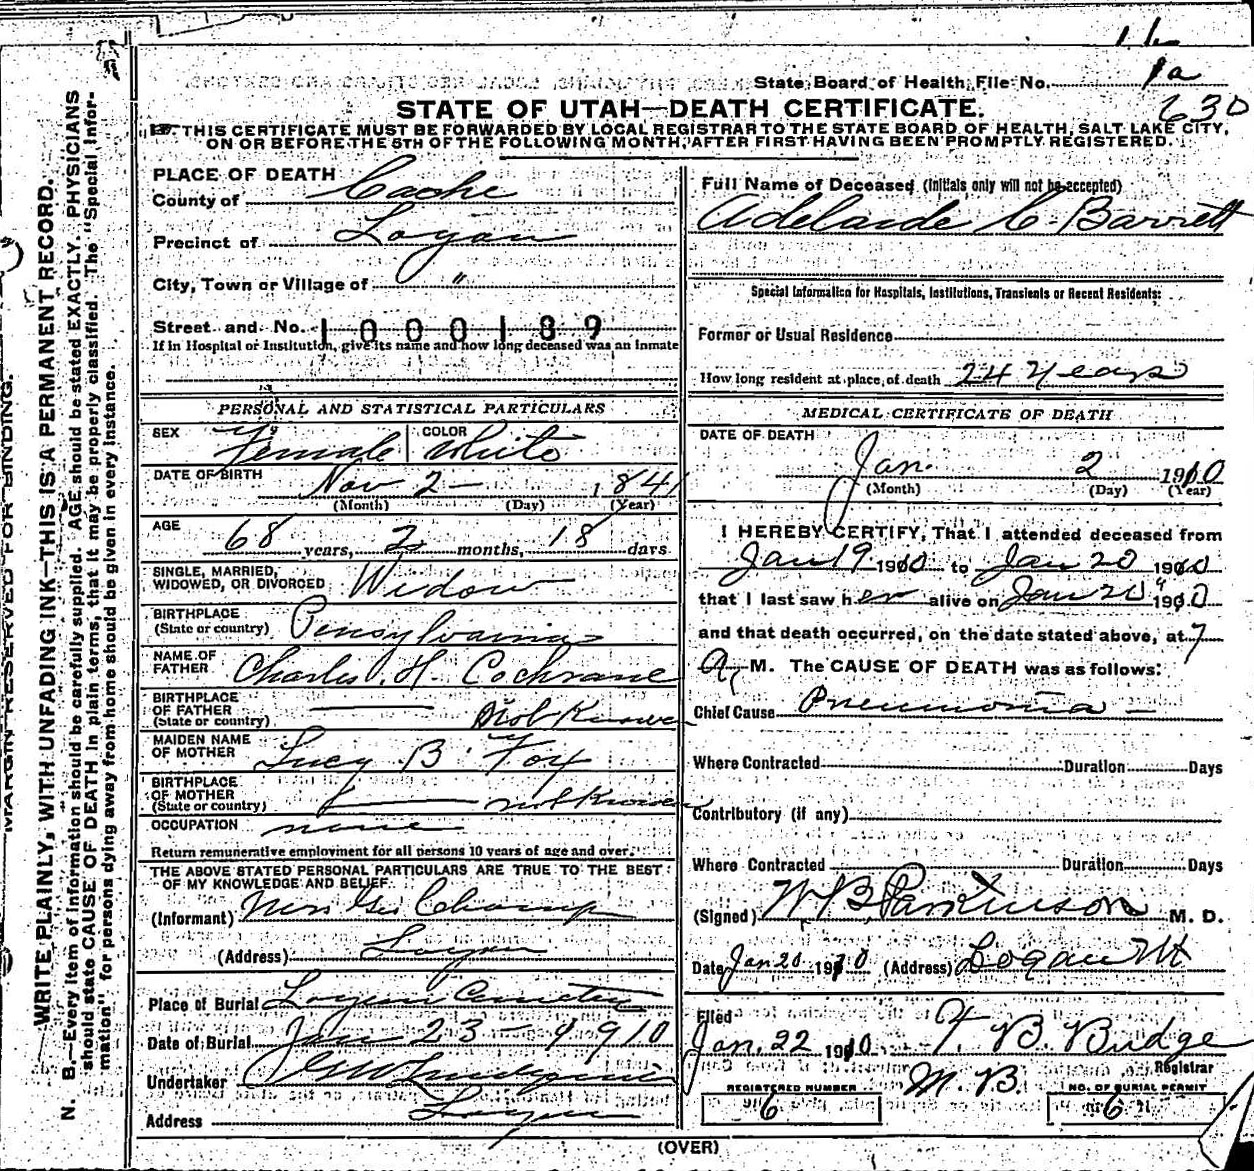 State Board of Health, File No. 1a
630
STATE OF UTAH—DEATH CERTIFICATE.
THIS CERTIFICATE MUST BE FORWARDED BY LOCAL REGISTRAR TO THE STATE BOARD OF HEALTH, SALT LAKE CITY,
ON OR BEFORE THE 5TH OF THE FOLLOWING MONTH, AFTER FIRST HAVING BEEN PROMPTLY REGISTERED.
MARGIN RESERVED FOR BINDING.
WRITE PLAINLY, WITH UNFADING INK—THIS IS A PERMANENT RECORD.
N. B.—Every item of information should be carefully supplied. AGE should be stated EXACTLY. PHYSICIANS
should state CAUSE OF DEATH in plain terms, that it may be properly classified. The "Special Infor-
mation" for persons dying away from home should be given in every instance.
PLACE OF DEATH
County of Cache
Precinct of Logan
City, Town or Village of "
Street and No. 1000189
If in Hospital or Institution, give its name and how long deceased was an inmate
PERSONAL AND STATISTICAL PARTICULARS
SEX Female COLOR White
DATE OF BIRTH Nov 2 - 1841
(Month) (Day) (Year)
AGE 68 years, 2 months, 18 days
SINGLE, MARRIED,
WIDOWED, OR DIVORCED Widow
BIRTHPLACE
(State or country) Pensylvania
NAME OF
FATHER Charles H. Cochrane
BIRTHPLACE
OF FATHER
(State or country) — Not Known
MAIDEN NAME
OF MOTHER Lucy B Foy
BIRTHPLACE
OF MOTHER
(State or country) — not Known
OCCUPATION none
Return remunerative employment for all persons 10 years of age and over.
THE ABOVE STATED PERSONAL PARTICULARS ARE TRUE TO THE BEST
OF MY KNOWLEDGE AND BELIEF
(Informant) Mrs Geo Champ
(Address) Logan
Place of Burial Logan Cemetery
Date of Burial Jan 23 - 1910
Undertaker
Address Logan
Full Name of Deceased (Initials only will not be accepted)
Adelaide C. Barrett
Special Information for Hospitals, Institutions, Transients or Recent Residents:
Former or Usual Residence
How long resident at place of death 24 Years
MEDICAL CERTIFICATE OF DEATH
DATE OF DEATH
Jan. 2 1910
(Month) (Day) (Year)
I HEREBY CERTIFY, That I attended deceased from
Jan 19 1910 to Jan 20 1910
that I last saw her alive on Jan 20 1910
and that death occurred, on the date stated above, at 7
A. M. The CAUSE OF DEATH was as follows:
Chief Cause Pneumonia -
Where Contracted Duration Days
Contributory (if any)
Where Contracted Duration Days
(Signed) W B Parkinson M. D.
Date Jan 20 1910 (Address) Logan Ut
Filed
Jan. 22 1910 F. B. Budge
Registrar
M. B.
REGISTERED NUMBER
6
NO. OF BURIAL PERMIT
6
(OVER)